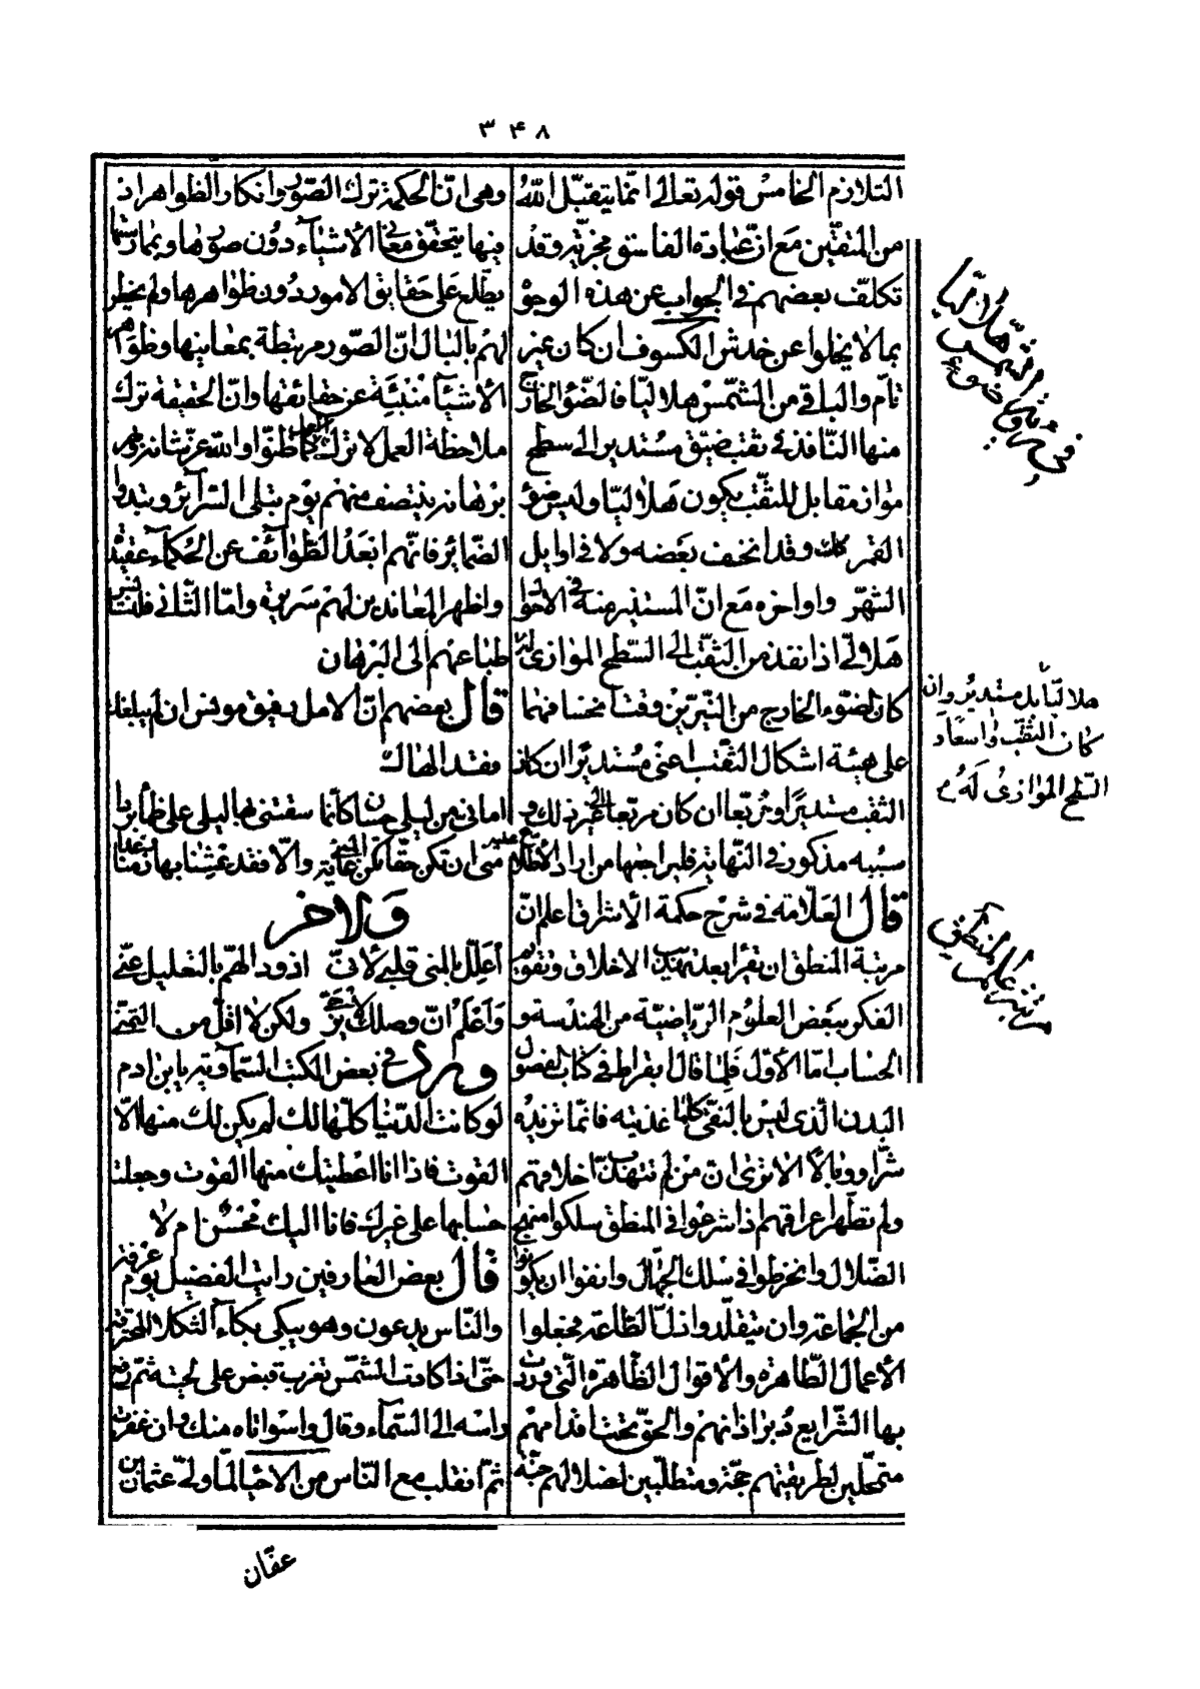 ۳۴۸
التلازم الخامس قوله تعالى انّما يتقبّل اللّه
من المتقين مع انّ عبادة الفاسق مجزية وقد
تكلّف بعضهم فى الجواب عن هذه الوجوه
بما لا يخلوا عن خدش الكسوف ان كان غير
تامّ والباقى من الشّمس هلاليّا فالضّوء الخارج
منها النّافذ فى ثقب ضيّق مستدير الى سطح
مواز مقابل للثّقب يكون هلاليّا وليس ضوء
القمر كك وقد انخسف بعضه ولا فى اوايل
الشّهر واواخره مع انّ المستنير منه فى الاحوال
هلالىّ اذا نفذ من الثقب الى السّطح الموازى له
كان الضّوء الخارج من النّيرين وقت انخسافهما
على هيئة اشكال الثقب اعنى مستديرا ان كان
الثقب مستديرا ومربّعا ان كان مربّعا الى غير ذلك و
سببه مذكور فى النّهاية فليراجعها من اراد الاطّلاع عليه
قال العلّامة فى شرح حكمة الأشراق اعلم انّ
مرتبة المنطق ان يقرأ بعد تهذيب الاخلاق وتقويم
الفكر ببعض العلوم الرّياضيّة من الهندسة و
الحساب امّا الأوّل فلما قال ابقراط فى كتاب الفصول
البدن الّذى ليس بالنقى كلّما غذيته فانّما تزيده
شرّا ووبالا الا ترى ان من لم تتهذّب اخلاقهم
ولم تطهر اعراقهم اذا شرعوا فى المنطق سلكوا منهج
الضّلال وانخرطوا فى سلك الجهّال وانفوا ان يكونوا
من الجماعة وان يتقلّدوا ذلّ الطّاعة فجعلوا
الأعمال الطّاهرة والأقوال الظّاهرة الّتى وردت
بها الشّرايع دبر اذانهم والحقّ تحت اقدامهم
متمحّلين لطريقتهم حجّة ومتطلّبين لضلالهم
وهى انّ الحكمة ترك الصّور وانكار الظواهر اذ
فيها يتحقّق معانى الأشياء دون صورها وبممارستها
يطّلع على حقايق الامور دون ظواهرها ولم يخطر
لهم بالبال انّ الصّور مرتبطة بمعانيها وظواهر
الأشياء منبئة عن حقائقها وانّ الحقيقة ترك
ملاحظة العمل لا ترك العمل كما ظنّوا واللّه عزّ شانه وبهر
برهانه ينتصف منهم يوم تبلى السّرائر وتبدوا
الضّمائر فانّهم ابعد الطّوائف عن الحكماء عقيدة
واظهر المعاندين لهم سريرة وامّا الثّانى فلتستأنس
طباعهم الى البرهان
قال بعضهم انّ الامل رفيق مونس ان لم يبلغك
فقد الهاك
امانى من ليلى حسان كأنّما سقتنى بها ليلى على ظمأ بردا
منى ان تكن حقا تكن غاية المنى والّا فقد عشنا بها زمنا رغدا
ولاخر
اُعَلّل بالمنى قلبى لأنّى اذود الهمّ بالتعليل عنّى
وَأَعلم انّ وصلك لا يرجى ولكن لا اقلّ من التمنّى
ورد فى بعض الكتب السّماويّة يا بن ادم
لو كانت الدّنيا كلّها لك لم يكن لك منها الّا
القوت فاذا انا اعطيتك منها القوت وجعلت
حسابها على غيرك فانا اليك محسن ام لا
قال بعض العارفين رايت الفضيل يوم عرفة
والنّاس يدعون وهو يبكى بكاء الثكلا المحترقة
حتّى اذا كادت الشّمس تغرب قبض على لحيته ثمّ رفع
راسه الى السّماء وقال واسواتاه منك وان غفرت
ثمّ انقلب مع النّاس من الاحيا لمّا ولّى عثمان بن
عفّان
هلاليّا بل مستدير وان
كان الثقب واسعا و
السّطح الموازى له م
مرتبة علم المنطق